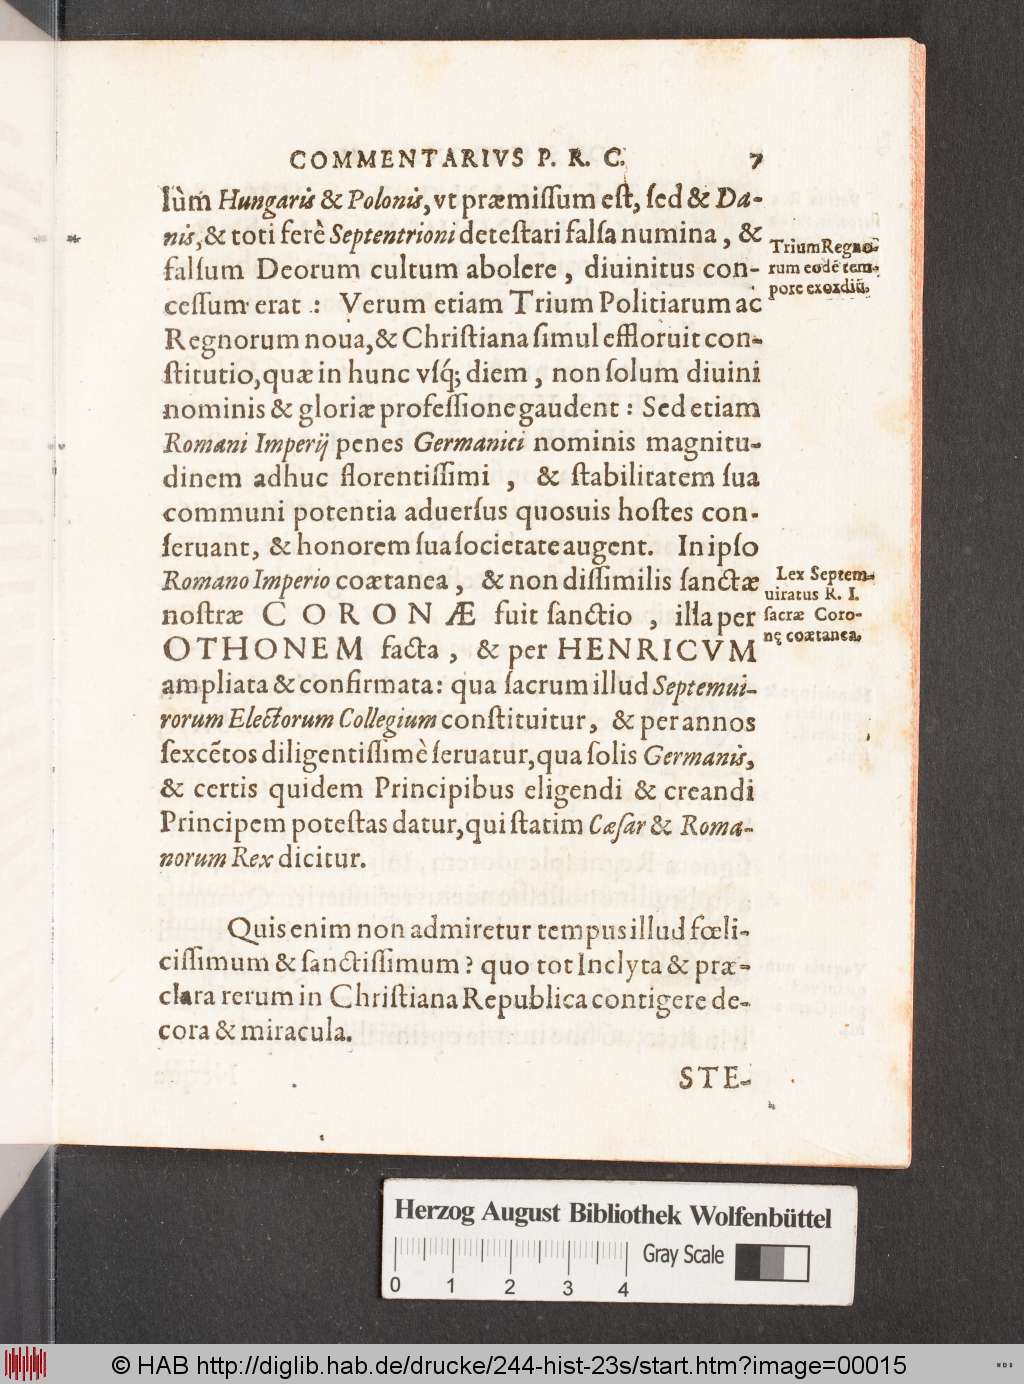 COMMENTARIVS P. R. C. 7
lùm Hungaris & Polonis, vt præmissum est, sed & Da-
nis, & toti ferè Septentrioni detestari falsa numina, &
falsum Deorum cultum abolere, diuinitus con-
cessum erat : Verum etiam Trium Politiarum ac
Regnorum noua, & Christiana simul effloruit con-
stitutio, quæ in hunc vsq; diem, non solum diuini
nominis & gloriæ professione gaudent : Sed etiam
Romani Imperij penes Germanici nominis magnitu-
dinem adhuc florentissimi, & stabilitatem sua
communi potentia aduersus quosuis hostes con-
seruant, & honorem sua societate augent. In ipso
Romano Imperio coætanea, & non dissimilis sanctæ
nostræ CORONÆ fuit sanctio, illa per
OTHONEM facta, & per HENRICVM
ampliata & confirmata: qua sacrum illud Septemui-
rorum Electorum Collegium constituitur, & per annos
sexcẽtos diligentissimè seruatur, qua solis Germanis,
& certis quidem Principibus eligendi & creandi
Principem potestas datur, qui statim Cæsar & Roma-
norum Rex dicitur.
Quis enim non admiretur tempus illud fœli-
cissimum & sanctissimum? quo tot Inclyta & præ-
clara rerum in Christiana Republica contigere de-
cora & miracula.
STE-
Trium Regno-
rum eodẽ tem-
pore exordiũ.
Lex Septem-
uiratus R. I.
sacræ Coro-
nę coætanea.
Herzog August Bibliothek Wolfenbüttel
Gray Scale
0 1 2 3 4
© HAB http://diglib.hab.de/drucke/244-hist-23s/start.htm?image=00015